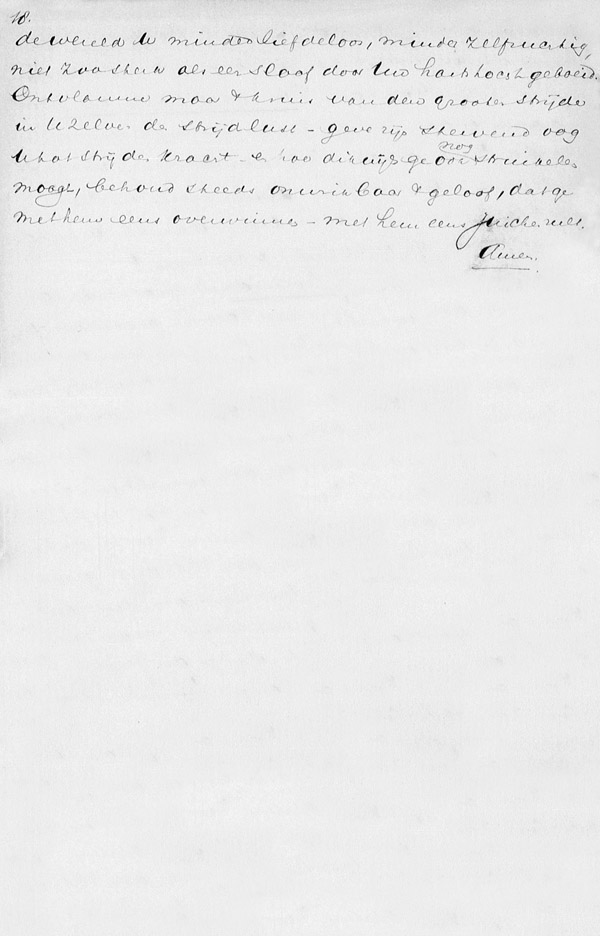 18.
de wereld U minder liefdeloos, minder zelfzuchtig,
niet zoo sterk als een slaaf door Uw hartstocht geboeid.
Ontvlamme maar 't kruis van den grooten strijder
in U zelven de strijdlust – geve zijn stervend oog
U tot strijden kracht – en hoe dikwijls ge ook nog struikelen
moogt, behoud steeds onwrikbaar 't geloof, dat ge
met hem eens overwinnen – met hem eens juichen zult.
Amen.